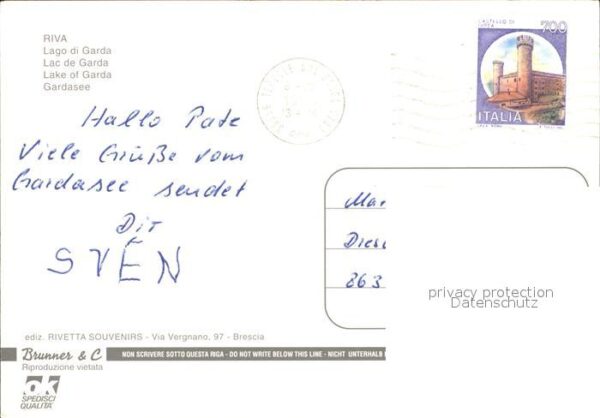 RIVA
Lago di Garda
Lac de Garda
Lake of Garda
Gardasee
CASTELLO DI
IVREA
700
ITALIA
Hallo Pate
Viele Grüße vom
Gardasee sendet
Dir
SVEN
Mar
Dies
863
privacy protection
Datenschutz
ediz. RIVETTA SOUVENIRS - Via Vergnano, 97 - Brescia
Brunner & C
NON SCRIVERE SOTTO QUESTA RIGA - DO NOT WRITE BELOW THIS LINE - NICHT UNTERHALB
Riproduzione vietata
ok
SPEDISCI
QUALITÀ